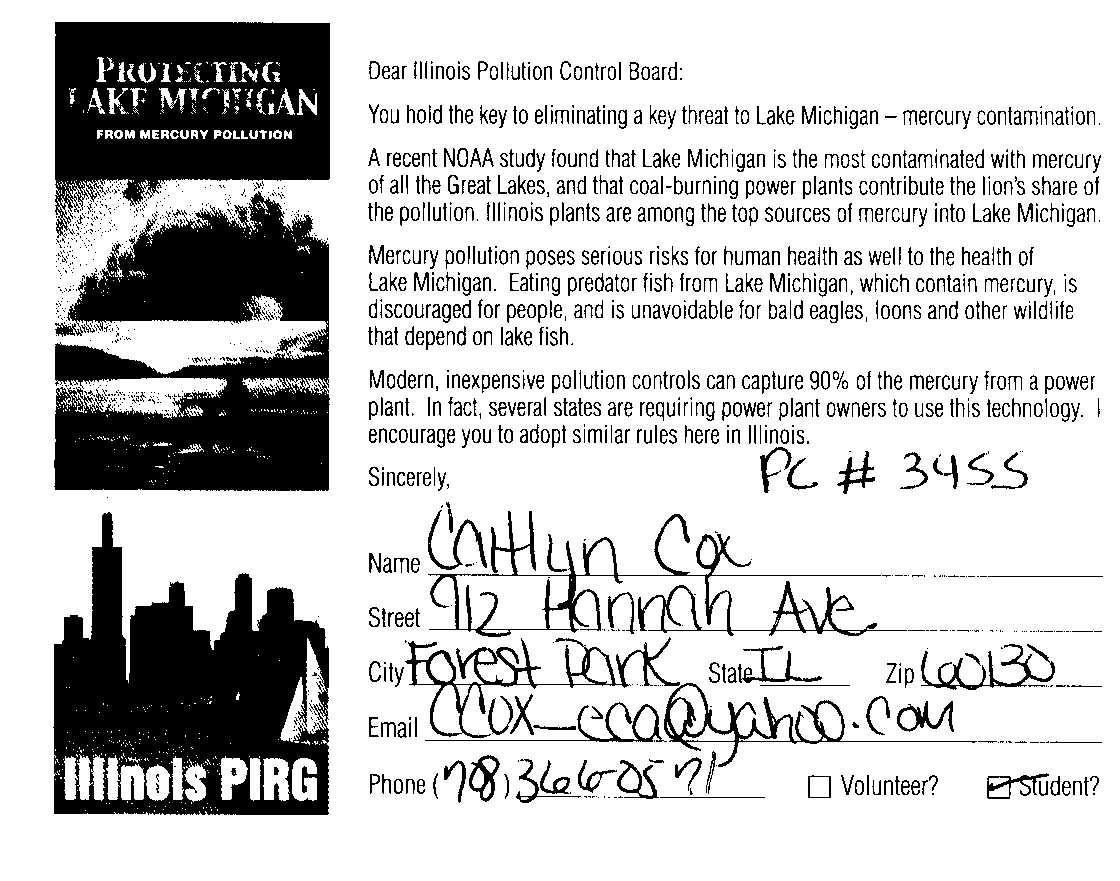 PROTECTING
LAKE MICHIGAN
FROM MERCURY POLLUTION
Illinois PIRG
Dear Illinois Pollution Control Board:
You hold the key to eliminating a key threat to Lake Michigan – mercury contamination.
A recent NOAA study found that Lake Michigan is the most contaminated with mercury
of all the Great Lakes, and that coal-burning power plants contribute the lion's share of
the pollution. Illinois plants are among the top sources of mercury into Lake Michigan.
Mercury pollution poses serious risks for human health as well to the health of
Lake Michigan. Eating predator fish from Lake Michigan, which contain mercury, is
discouraged for people, and is unavoidable for bald eagles, loons and other wildlife
that depend on lake fish.
Modern, inexpensive pollution controls can capture 90% of the mercury from a power
plant. In fact, several states are requiring power plant owners to use this technology. I
encourage you to adopt similar rules here in Illinois.
Sincerely,
PC # 3455
Name Caitlyn Cox
Street 912 Hannah Ave.
City Forest Park State IL Zip 60130
Email CCOX_eca@yahoo.com
Phone (708)366-0571 Volunteer? Student?